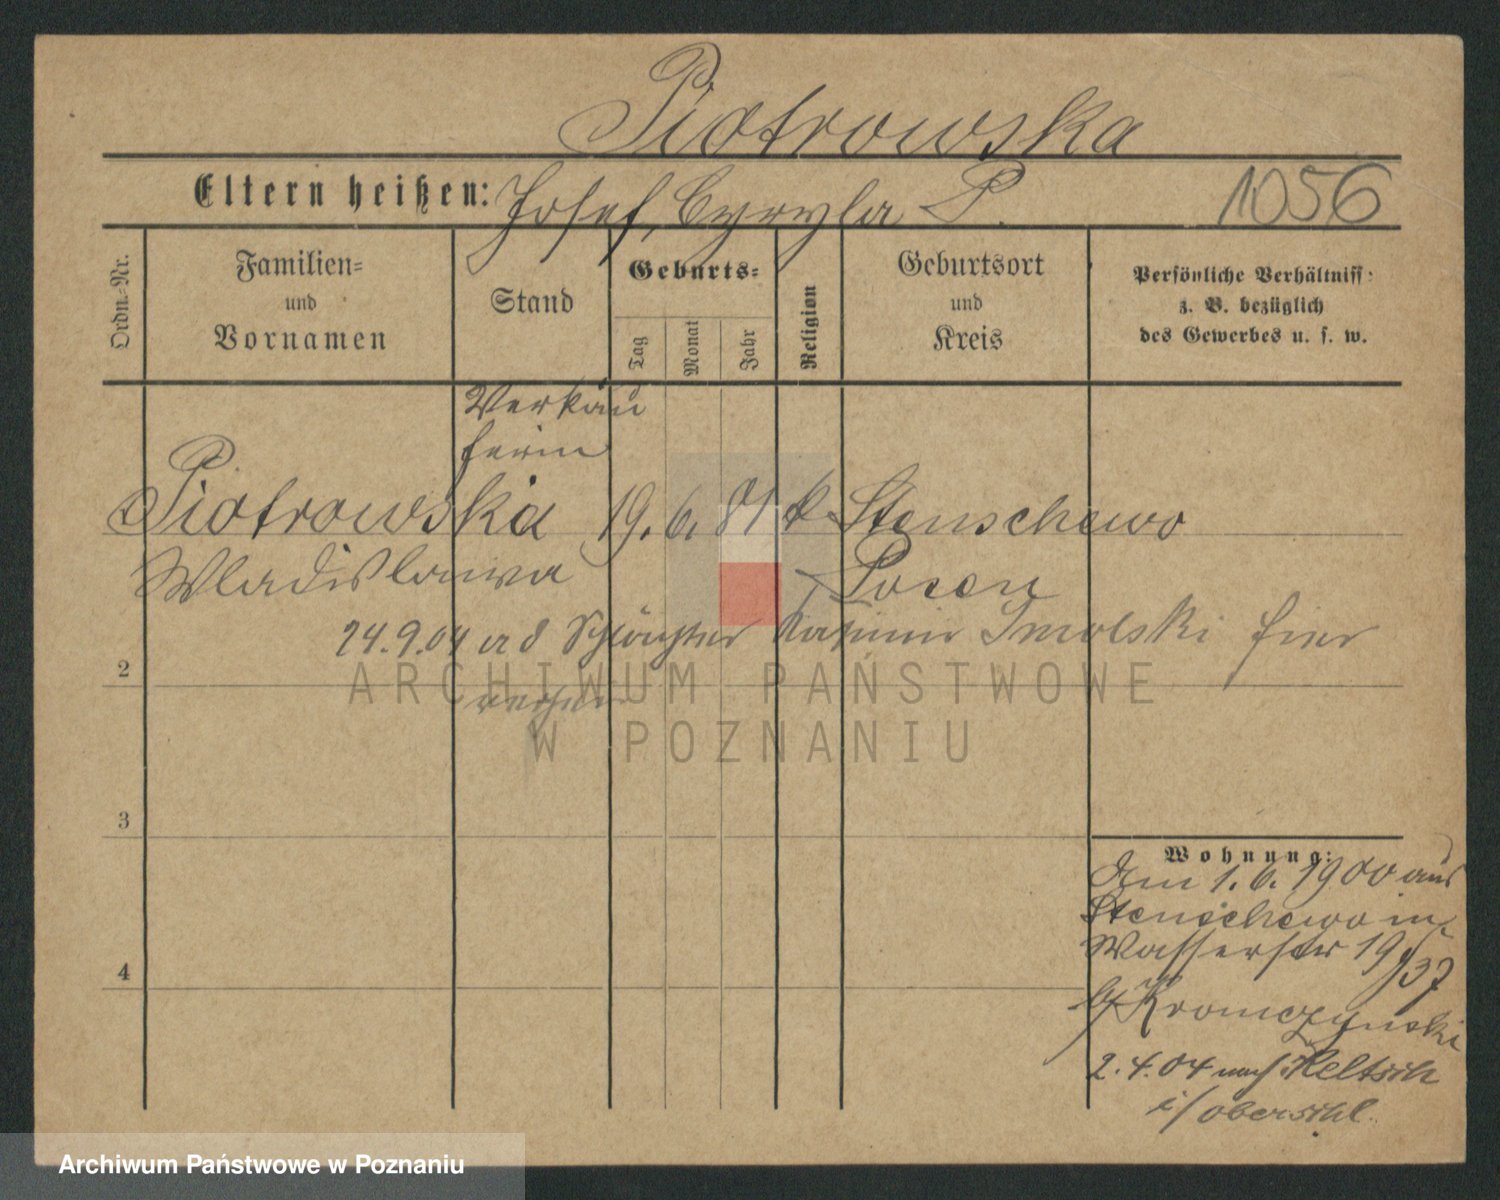 Piotrowska
Eltern heißen: Josef, Cyryla P. 1056
Ordn.-Nr.
Familien-
und
Vornamen
Stand
Geburts-
Tag
Monat
Jahr
Religion
Geburtsort
und
Kreis
Persönliche Verhältniss-
z. B. bezüglich
des Gewerbes u. s. w.
Verkäu
ferin
Piotrowska 19. 6. 81 k Stenschewo
Wladislawa Posen
24.9.04 Kasimir Smolski hier
2
3
4
Wohnung:
Am 1. 6. 1900 aus
Stenschewo in
Wasserstr 19/37
b/ Kromczynski
2.4.04 nach Keltsch
i/ oberschl.
ARCHIWUM PAŃSTWOWE
W POZNANIU
Archiwum Państwowe w Poznaniu